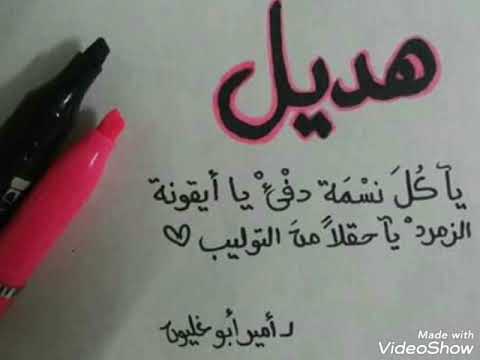 هديل
يآ كُلَ نسْمَة دفْئْ يا أيقونة
الزمردْ يآ حقلاً منَ التوليب ♡
د أمير أبو غليون
Made with
VideoShow